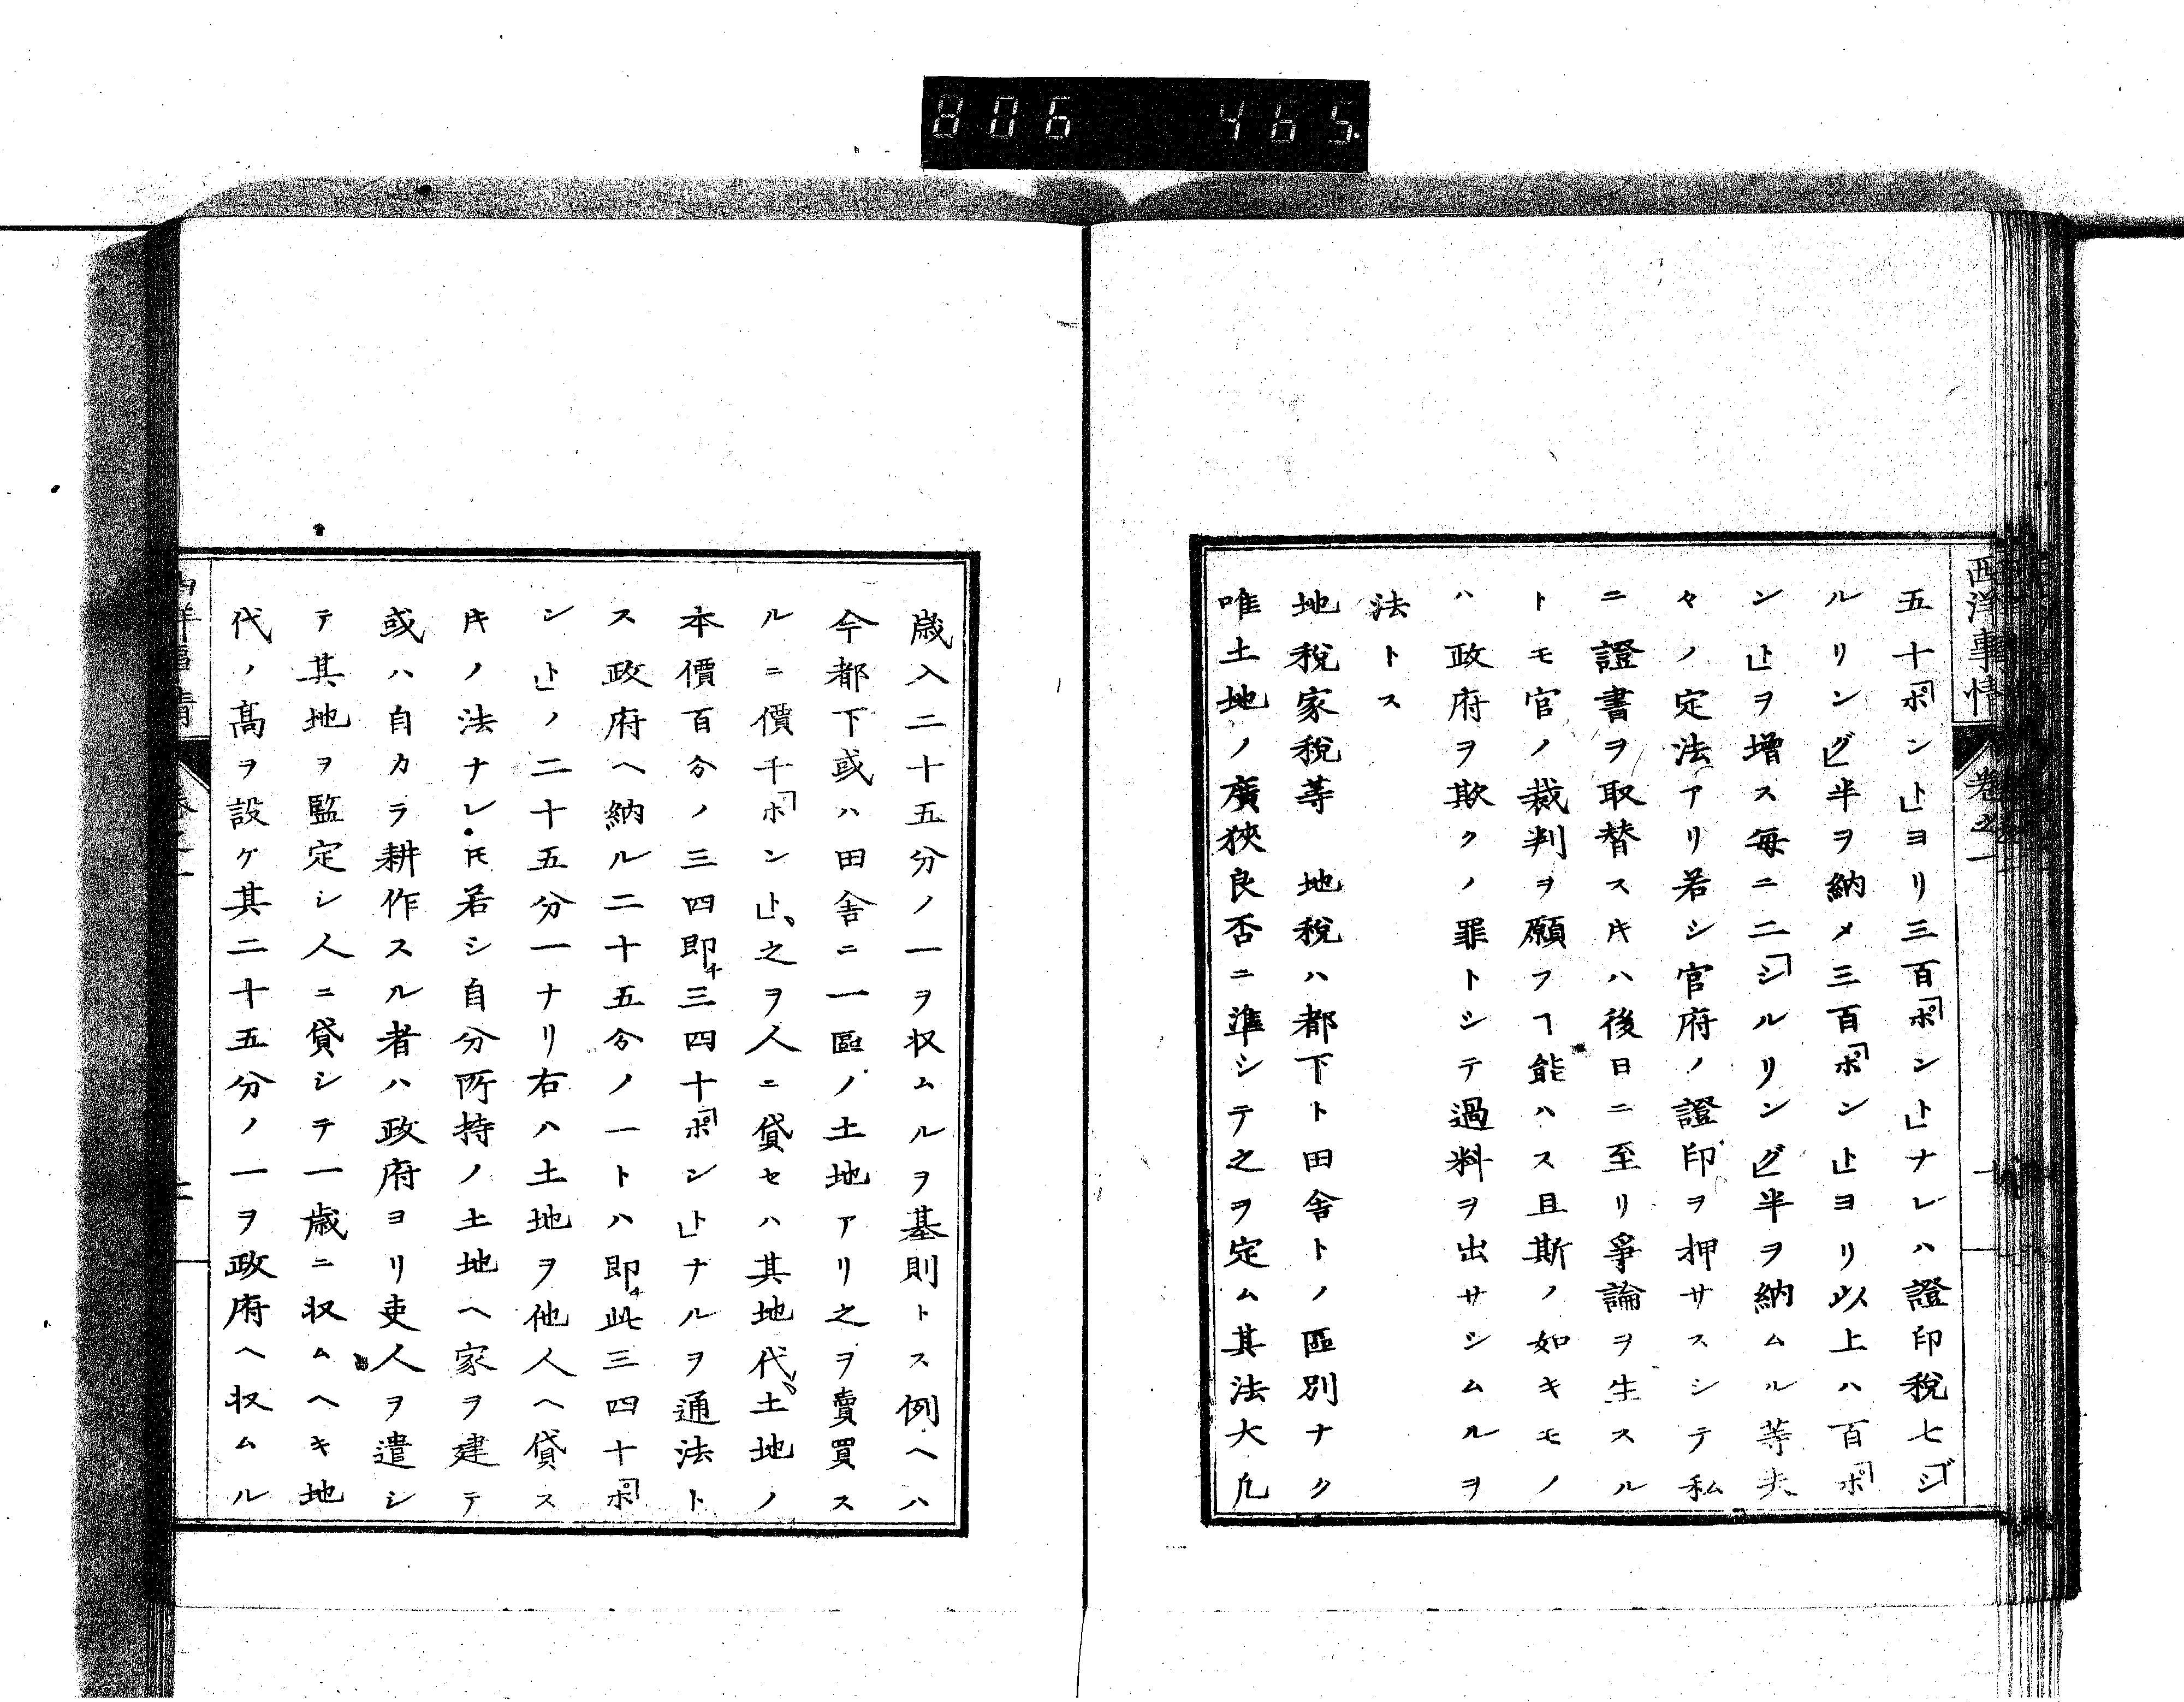 806 465
西洋事情
卷之一
五十「ポンド」ヨリ三百「ポンド」ナレハ證印税七「シ
ルリング」半ヲ納メ三百「ポンド」ヨリ以上ハ百「ポ
ンド」ヲ増ス毎ニ二「シルリング」半ヲ納ムル等夫
々ノ定法アリ若シ官府ノ證印ヲ押サスシテ私
ニ證書ヲ取替スキハ後日ニ至リ爭論ヲ生スル
トモ官ノ裁判ヲ願フヿ能ハス且斯ノ如キモノ
ハ政府ヲ欺クノ罪トシテ過料ヲ出サシムルヲ
法トス
地税家税等 地税ハ都下ト田舎トノ區別ナク
唯土地ノ廣狹良否ニ準シテ之ヲ定ム其法大凡
歳入二十五分ノ一ヲ収ムルヲ基則トス例ヘハ
今都下或ハ田舎ニ一區ノ土地アリ之ヲ賣買ス
ルニ價千「ポンド」、之ヲ人ニ貸セハ其地代、土地ノ
本價百分ノ三四即チ三四十「ポンド」ナルヲ通法ト
ス政府ヘ納ル二十五分ノ一トハ即チ此三四十「ポ
ンド」ノ二十五分一ナリ右ハ土地ヲ他人ヘ貸ス
キノ法ナレ𪜈若シ自分所持ノ土地ヘ家ヲ建テ
或ハ自カラ耕作スル者ハ政府ヨリ吏人ヲ遣シ
テ其地ヲ監定シ人ニ貸シテ一歳ニ収ムヘキ地
代ノ髙ヲ設ケ其二十五分ノ一ヲ政府ヘ収ムル